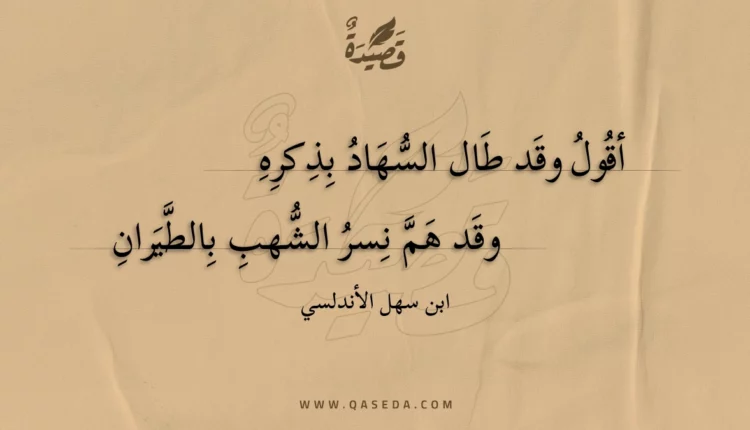 قَصِيْدَةٌ
أقُولُ وقَد طَال السُّهَادُ بِذِكرِهِ
وقَد هَمَّ نِسرُ الشُّهبِ بِالطَّيَرانِ
ابن سهل الأندلسي
WWW.QASEDA.COM